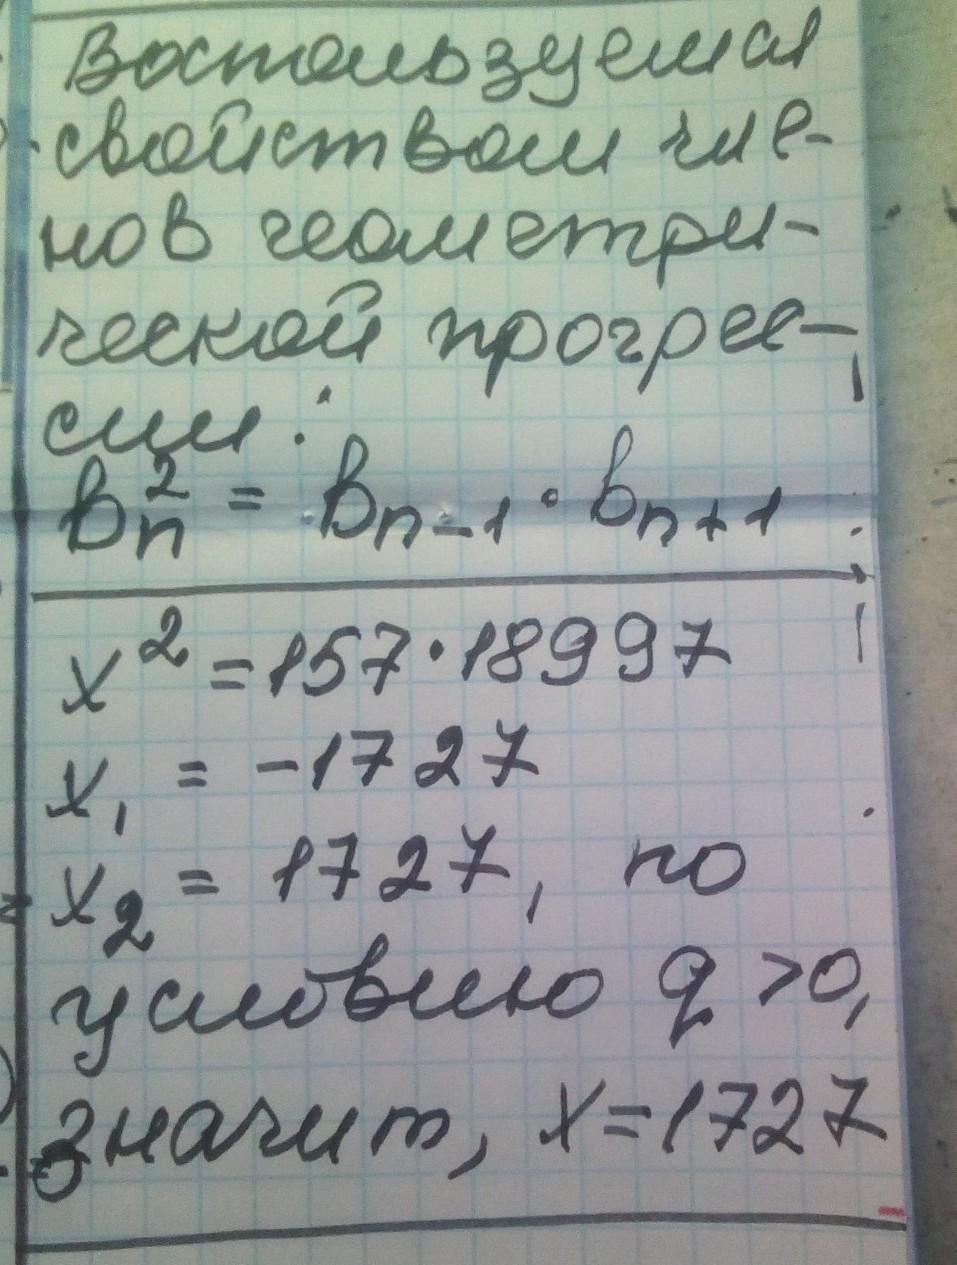 Воспользуемся
свойством чле-
нов геометри-
ческой прогрес-
сии:
bₙ² = bₙ₋₁ · bₙ₊₁
x² = 157 · 18997
x₁ = -1727
x₂ = 1727, по
условию q >0,
значит, x = 1727